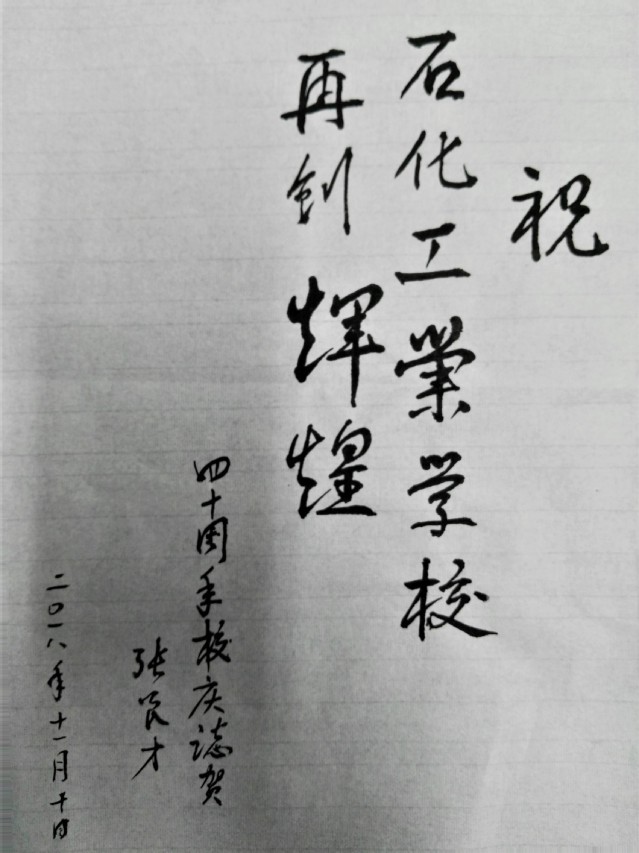 祝
石化工業学校
再创煇煌
四十周年校庆誌贺
张才
二〇一八年十一月十日